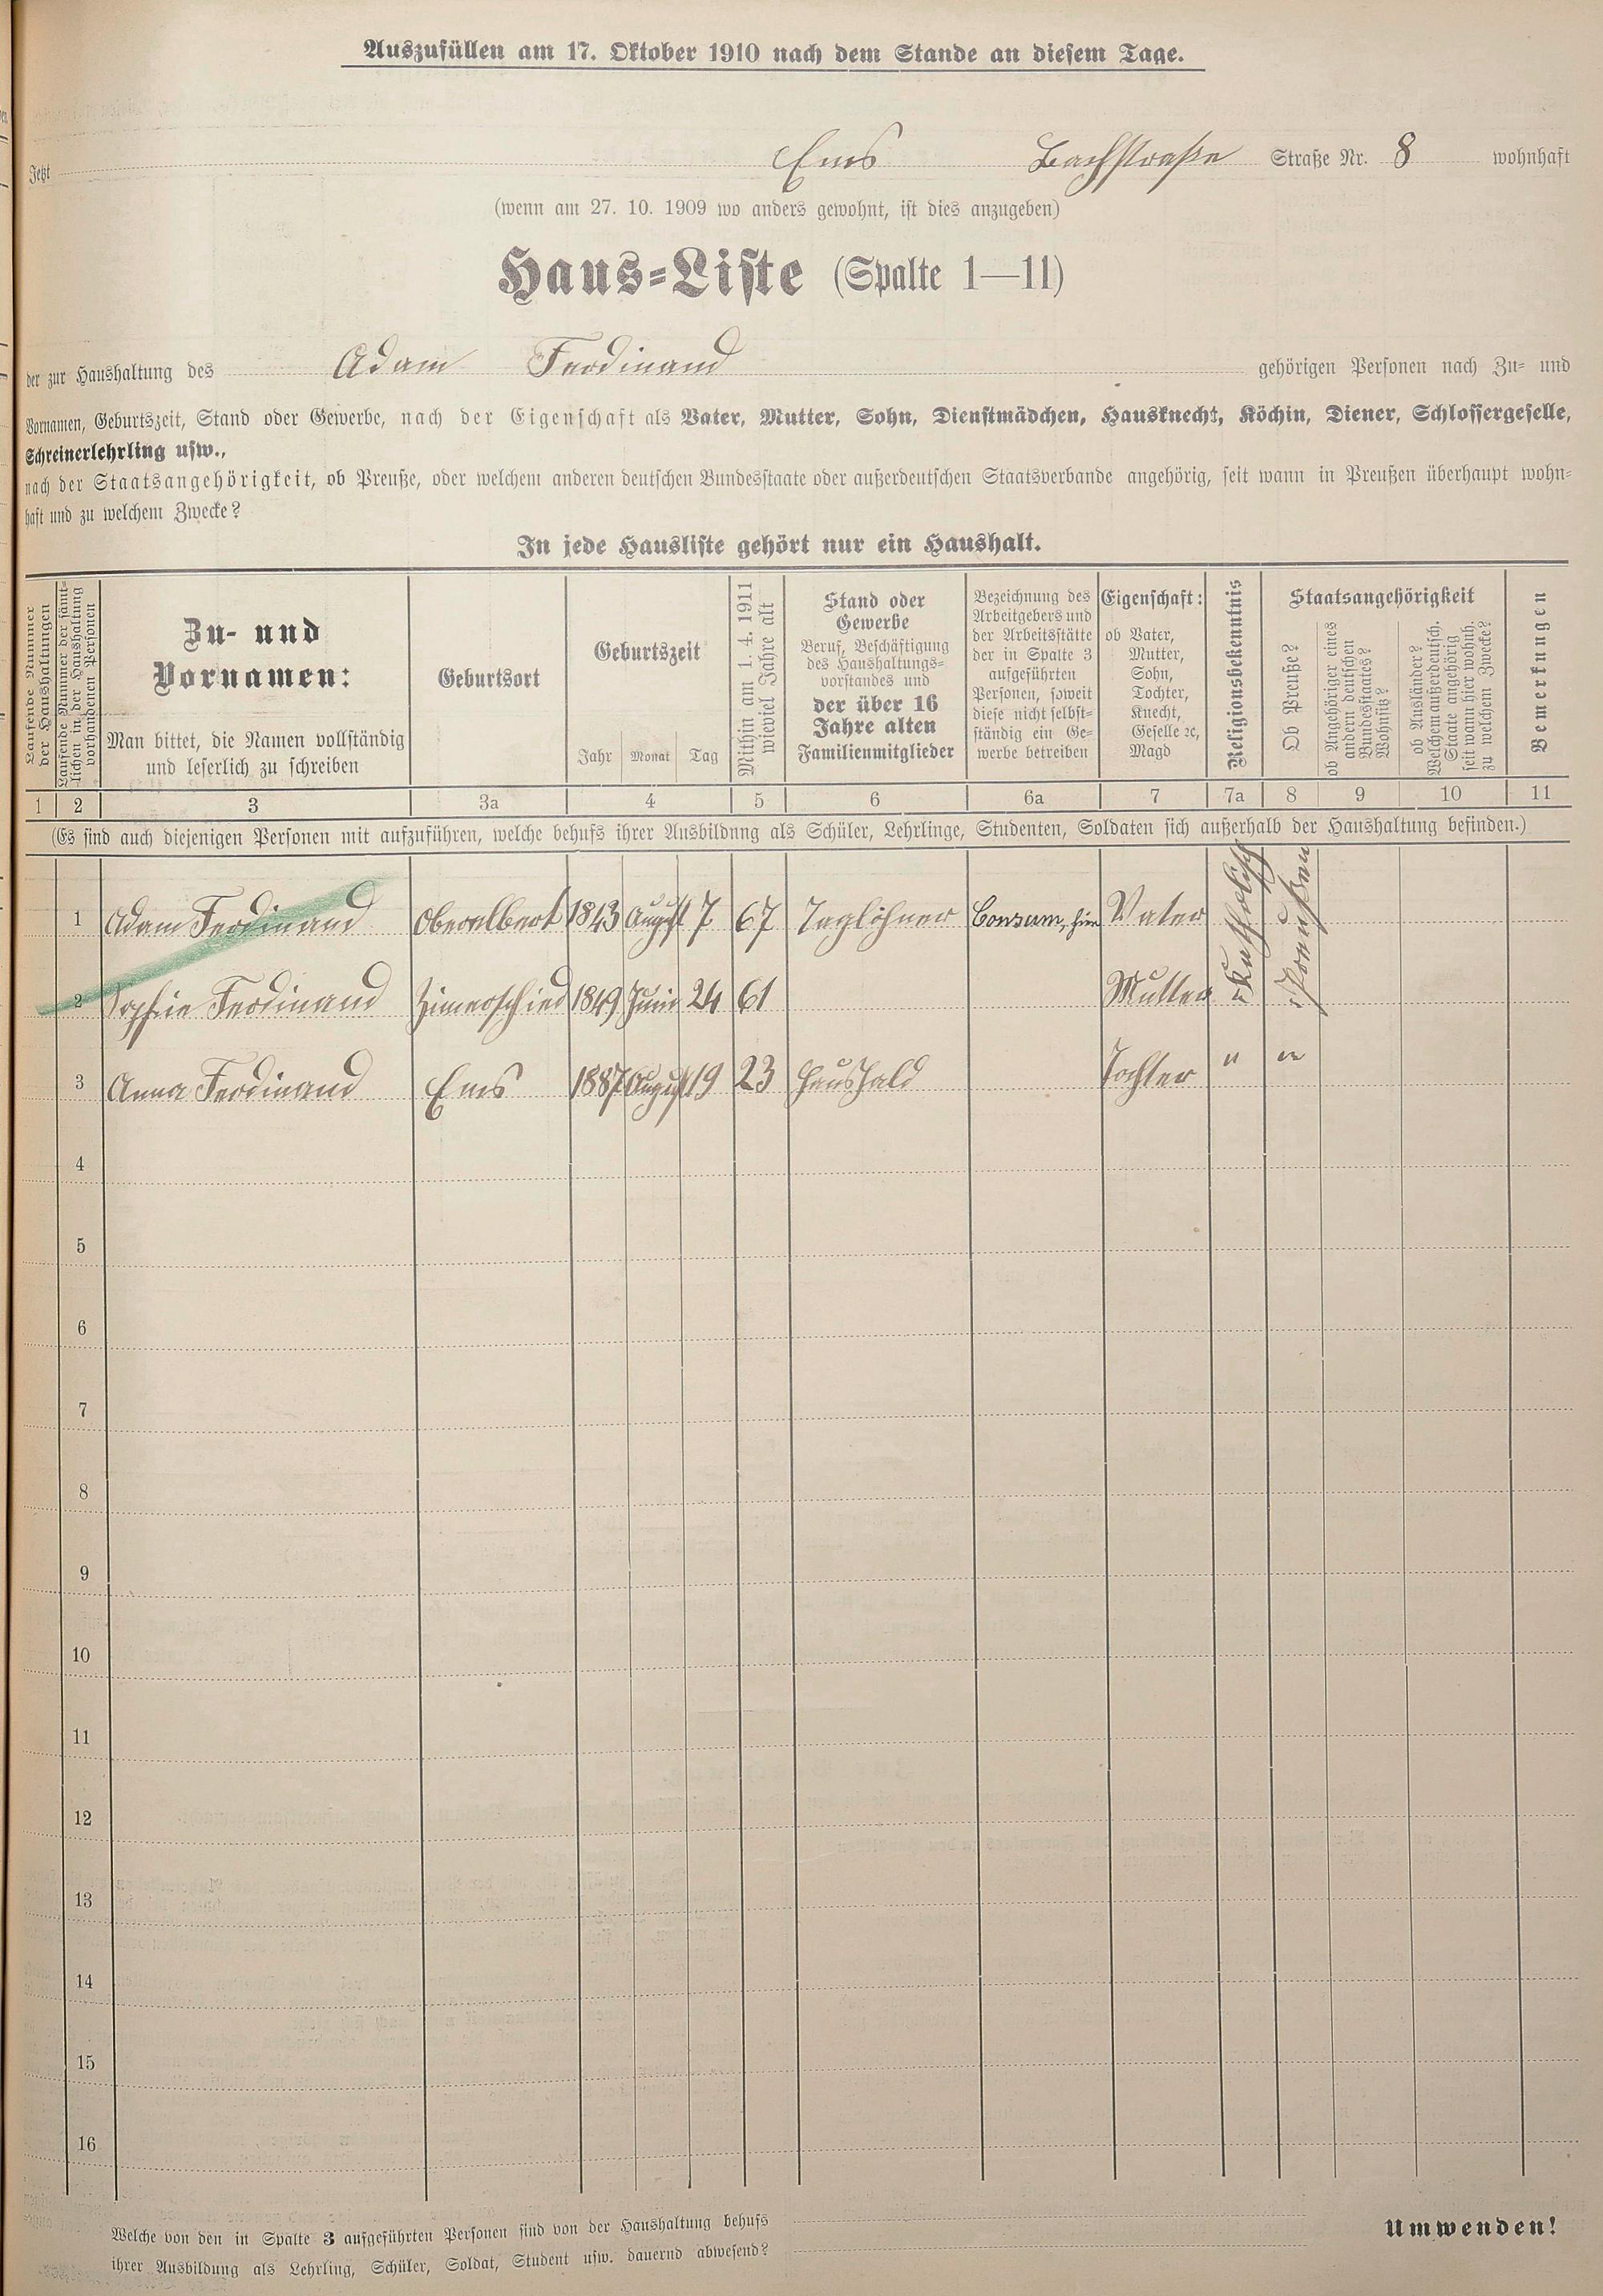 Auszufüllen am 17. Oktober 1910 nach dem Stande an diesem Tage.
Jetzt Ems Bachstraße Straße Nr. 8 wohnhaft
(wenn am 27. 10. 1909 wo anders gewohnt, ist dies anzugeben)
Haus-Liste (Spalte 1—11)
der zur Haushaltung des Adam Ferdinand gehörigen Personen nach Zu- und
Vornamen, Geburtszeit, Stand oder Gewerbe, nach der Eigenschaft als Vater, Mutter, Sohn, Dienstmädchen, Hausknecht, Köchin, Diener, Schlossergeselle,
Schreinerlehrling usw.,
nach der Staatsangehörigkeit, ob Preuße, oder welchem anderen deutschen Bundesstaate oder außerdeutschen Staatsverbande angehörig, seit wann in Preußen überhaupt wohn-
haft und zu welchem Zwecke?
In jede Hausliste gehört nur ein Haushalt.
Laufende Nummer
der Haushaltungen
Laufende Nummer der sämt-
lichen in der Haushaltung
vorhandenen Personen
Zu- und
Vornamen:
Man bittet, die Namen vollständig
und leserlich zu schreiben
Geburtsort
Geburtszeit
Jahr Monat Tag
Mithin am 1. 4. 1911
wieviel Jahre alt
Stand oder
Gewerbe
Beruf, Beschäftigung
des Haushaltungs-
vorstandes und
der über 16
Jahre alten
Familienmitglieder
Bezeichnung des
Arbeitgebers und
der Arbeitsstätte
der in Spalte 3
aufgeführten
Personen, soweit
diese nicht selbst-
ständig ein Ge-
werbe betreiben
Eigenschaft:
ob Vater,
Mutter,
Sohn,
Tochter,
Knecht,
Geselle ꝛc,
Magd
Religionsbekenntnis
Staatsangehörigkeit
Ob Preuße?
ob Angehöriger eines
andern deutschen
Bundesstaates?
Wohnsitz?
ob Ausländer?
Welchem außerdeutsch.
Staate angehörig
seit wann hier wohnh.
zu welchem Zwecke?
Bemerkungen
1 2 3 3a 4 5 6 6a 7 7a 8 9 10 11
(Es sind auch diejenigen Personen mit aufzuführen, welche behufs ihrer Ausbildung als Schüler, Lehrlinge, Studenten, Soldaten sich außerhalb der Haushaltung befinden.)
1 Adam Ferdinand Oberelbert 1843 August 7 67 Taglöhner Consum, hier Vater Katholisch Preußen
2 Sophie Ferdinand Zimerschied 1849 Juni 24 61 Mutter " "
3 Anna Ferdinand Ems 1887 August 19 23 Haushald Tochter " "
4
5
6
7
8
9
10
11
12
13
14
15
16
Welche von den in Spalte 3 aufgeführten Personen sind von der Haushaltung behufs
ihrer Ausbildung als Lehrling, Schüler, Soldat, Student usw. dauernd abwesend?
Umwenden!